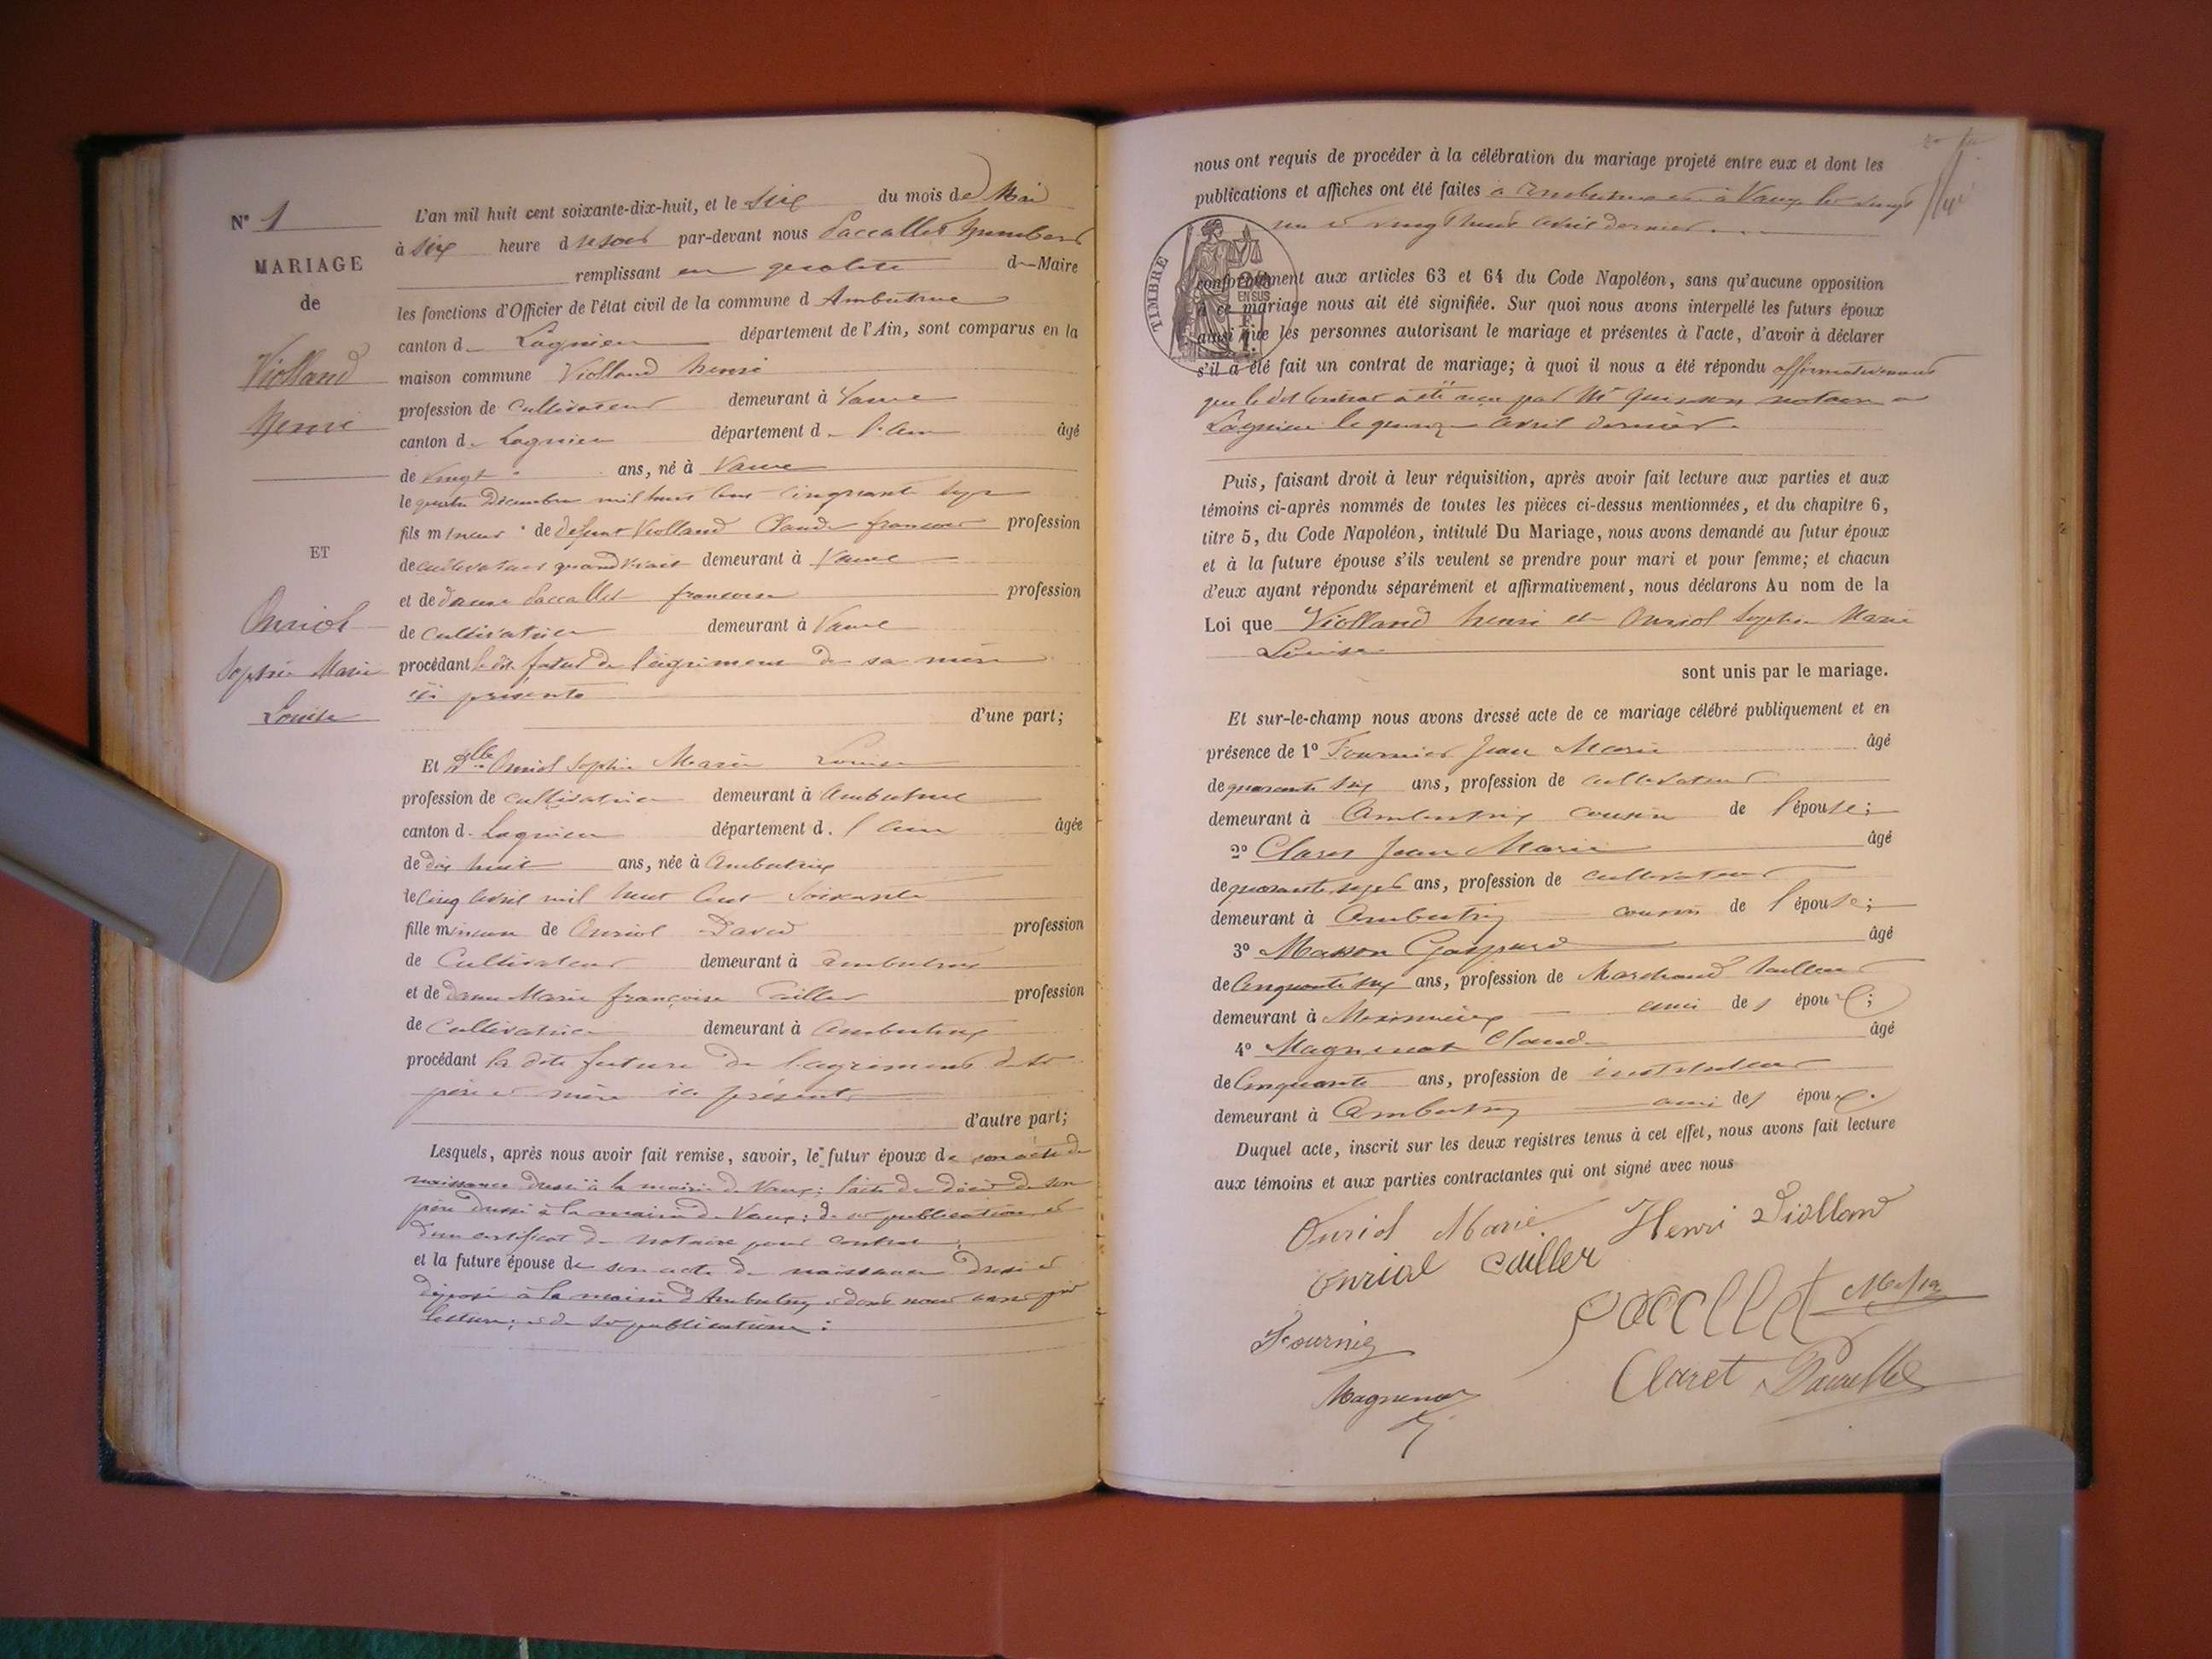 N° 1
MARIAGE
de
Violland
Henri
ET
Onriol
Sophie Marie
Louise
L'an mil huit cent soixante-dix-huit, et le six du mois de Mai
à six heure du soir par-devant nous Paccallet Humbert
remplissant en qualité de Maire
les fonctions d'Officier de l'état civil de la commune d Ambutrix
canton d. Lagnieu département de l'Ain, sont comparus en la
maison commune Violland henri
profession de cultivateur demeurant à Vaux
canton d. Lagnieu département d. l'ain âgé
de vingt ans, né à Vaux
le quatre Décembre mil huit cent cinquante sept
fils mineur de défunt Violland Claude francois profession
de cultivateur quand vivait demeurant à Vaux
et de dame Paccallet francoise profession
de cultivatrice demeurant à Vaux
procédant le dit futur de l'agriment de sa mère
ici présente
d'une part;
Et Dlle Onriol Sophie Marie Louise
profession de cultivatrice demeurant à Ambutrix
canton d. Lagnieu département d. l'ain âgée
de dix huit ans, née à Ambutrix
le cinq avril mil huit cent soixante
fille mineure de Onriol David profession
de Cultivateur demeurant à Ambutrix
et de dame Marie françoise Cailler profession
de Cultivatrice demeurant à Ambutrix
procédant la dite future de l'agriment de ses
père et mère ici présents
d'autre part;
Lesquels, après nous avoir fait remise, savoir, le futur époux de son acte de
naissance dressé à la mairie de Vaux; l'acte de décès de son
père dressé à la mairie de Vaux; de ses publications et
d'un certificat de notaire pour contrat;
et la future épouse de son acte de naissance dressé et
déposé à la mairie d'Ambutrix et dont nous avons pris
lecture; et de ses publications:
nous ont requis de procéder à la célébration du mariage projeté entre eux et dont les
publications et affiches ont été faites à Ambutrix et à Vaux les vingt
un et vingt huit avril dernier.
TIMBRE
EN SUS
conformément aux articles 63 et 64 du Code Napoléon, sans qu'aucune opposition
à ce mariage nous ait été signifiée. Sur quoi nous avons interpellé les futurs époux
ainsi que les personnes autorisant le mariage et présentes à l'acte, d'avoir à déclarer
s'il a été fait un contrat de mariage; à quoi il nous a été répondu affirmativement
que le dit contrat a été reçu par Me notaire à
Lagnieu le quinze avril dernier.
Puis, faisant droit à leur réquisition, après avoir fait lecture aux parties et aux
témoins ci-après nommés de toutes les pièces ci-dessus mentionnées, et du chapitre 6,
titre 5, du Code Napoléon, intitulé Du Mariage, nous avons demandé au futur époux
et à la future épouse s'ils veulent se prendre pour mari et pour femme; et chacun
d'eux ayant répondu séparément et affirmativement, nous déclarons Au nom de la
Loi que Violland henri et Onriol Sophie Marie
Louise
sont unis par le mariage.
Et sur-le-champ nous avons dressé acte de ce mariage célébré publiquement et en
présence de 1° Fournier Jean Marie âgé
de quarante six ans, profession de cultivateur
demeurant à Ambutrix cousin de l'épouse;
2° Claret Jean Marie âgé
de quarante sept ans, profession de cultivateur
demeurant à Ambutrix cousin de l'épouse;
3° Masson Gaspard âgé
de cinquante six ans, profession de Marchand tailleur
demeurant à Meximieux ami des époux;
4° Magnenot Claude âgé
de Cinquante ans, profession de instituteur
demeurant à Ambutrix ami des époux.
Duquel acte, inscrit sur les deux registres tenus à cet effet, nous avons fait lecture
aux témoins et aux parties contractantes qui ont signé avec nous
Onriol Marie Henri Violland
Onriol Cailler
Paccallet Masson
Fournier
Claret Paccallet
Magnenot